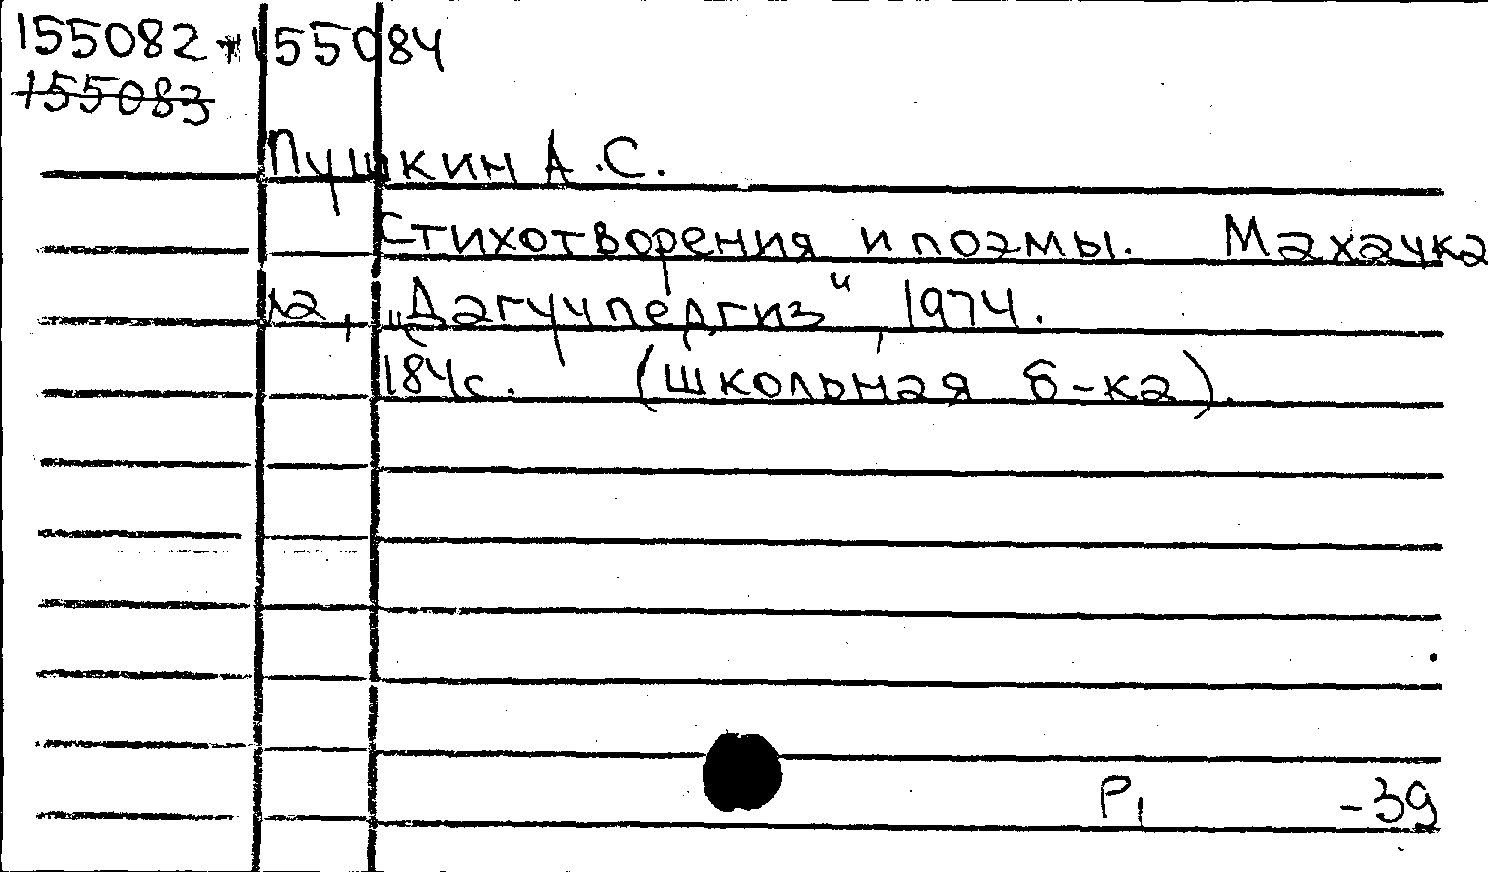 155082 * 155084
155083
Пушкин А.С.
Стихотворения и поэмы. Махачка
ла, „Дагучпедгиз“, 1974.
184с. (Школьная б-ка).
Р1 -39